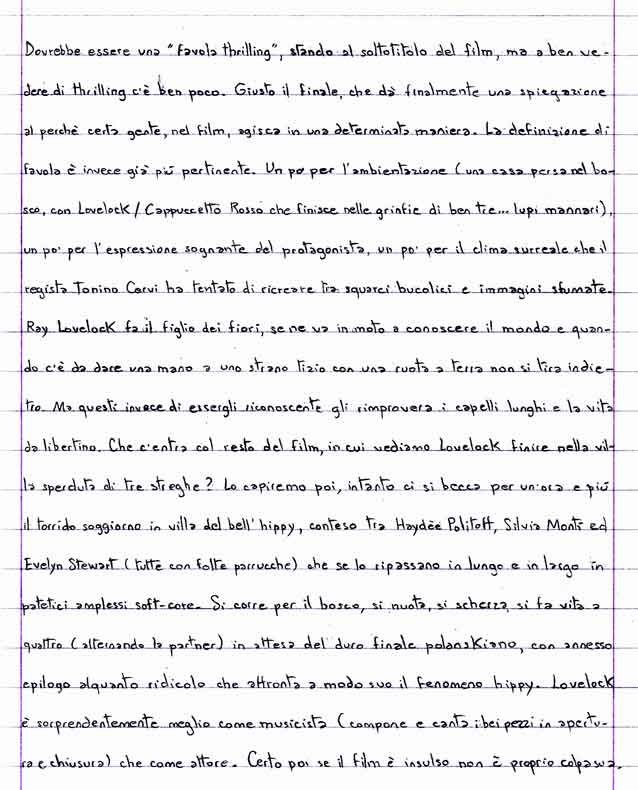 Dovrebbe essere una "favola thrilling", stando al sottotitolo del film, ma a ben ve-
dere di thrilling c'è ben poco. Giusto il finale, che dà finalmente una spiegazione
al perchè certa gente, nel film, agisca in una determinata maniera. La definizione di
favola è invece già più pertinente. Un po' per l'ambientazione (una casa persa nel bo-
sco, con Lovelock/Cappuccetto Rosso che finisce nelle grinfie di ben tre... lupi mannari),
un po' per l'espressione sognante del protagonista, un po' per il clima surreale che il
regista Tonino Cervi ha tentato di ricreare tra squarci bucolici e immagini sfumate.
Ray Lovelock fa il figlio dei fiori, se ne va in moto a conoscere il mondo e quan-
do c'è da dare una mano a uno strano tizio con una ruota a terra non si tira indie-
tro. Ma questi invece di essergli riconoscente gli rimprovera i capelli lunghi e la vita
da libertino. Che c'entra col resto del film, in cui vediamo Lovelock finire nella vil-
la sperduta di tre streghe? Lo capiremo poi, intanto ci si becca per un'ora e più
il torrido soggiorno in villa del bell'hippy, conteso tra Haydèe Politoff, Silvia Monti ed
Evelyn Stewart (tutte con folte parrucche) che se lo ripassano in lungo e in largo in
patetici amplessi soft-core. Si corre per il bosco, si nuota, si scherza, si fa vita a
quattro (alternando la partner) in attesa del duro finale polanskiano, con annesso
epilogo alquanto ridicolo che affronta a modo suo il fenomeno hippy. Lovelock
è sorprendentemente meglio come musicista (compone e canta i bei pezzi in apertu-
ra e chiusura) che come attore. Certo poi se il film è insulso non è proprio colpa sua.